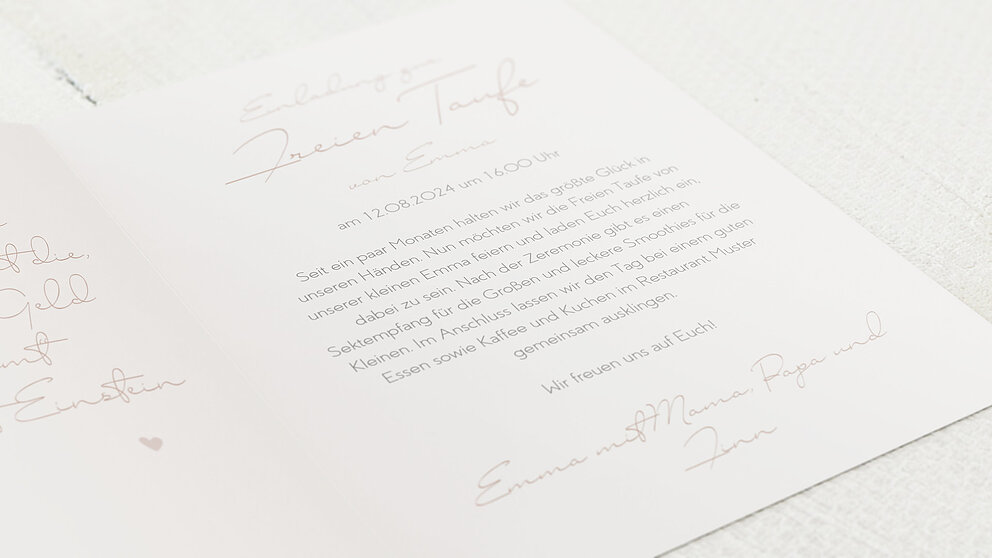 t die,
Geld
mt
Einstein
Einladung zur
Freien Taufe
von Emma
am 12.08.2024 um 16:00 Uhr
Seit ein paar Monaten halten wir das größte Glück in
unseren Händen. Nun möchten wir die Freien Taufe von
unserer kleinen Emma feiern und laden Euch herzlich ein,
dabei zu sein. Nach der Zeremonie gibt es einen
Sektempfang für die Großen und leckere Smoothies für die
Kleinen. Im Anschluss lassen wir den Tag bei einem guten
Essen sowie Kaffee und Kuchen im Restaurant Muster
gemeinsam ausklingen.
Wir freuen uns auf Euch!
Emma mit Mama, Papa und
Finn